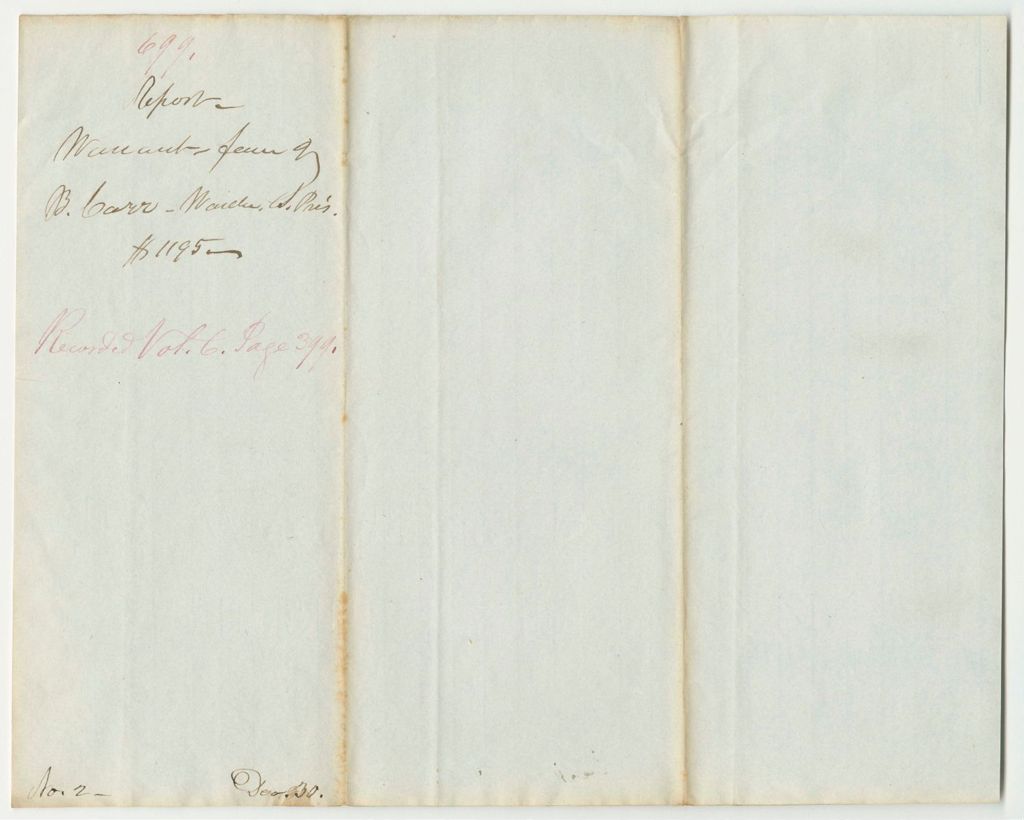 699.
Report
Warrant favr of
B. Carr - Warden S. Pris.
$1195
Recorded Vol. 6. Page 399.
No. 2 - Dec. 30.